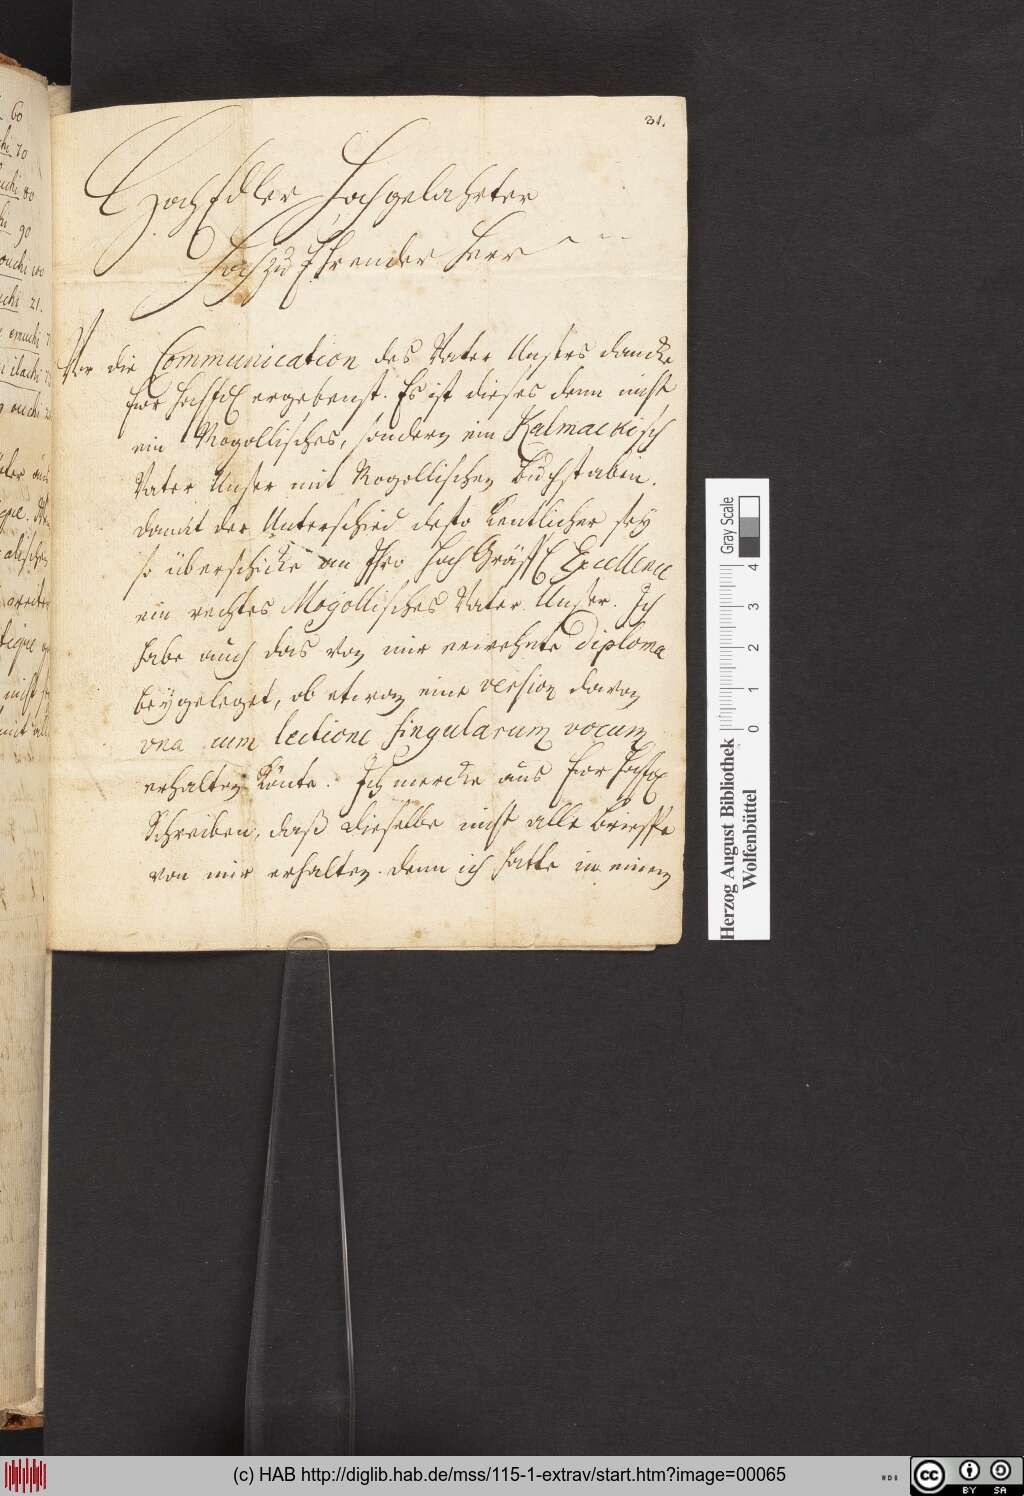 31.
HochEdler Hochgelahrter
HochzuEhrender Herr
Vor die Communication des Vater Unsers dancke
Ew HochEd ergebenst. Es ist dieses denn nicht
ein Mogollisches, sondern ein Kalmackisch
Vater Unser mit Mogollischen Buchstaben.
Damit der Unterschied desto kentlicher sey
so überschicke an Ihro Hoch Gräffl Excellence
ein rechtes Mogollisches Vater Unser. Ich
habe auch das von mir erwehnte diploma
beygeleget, ob etwan eine version davon
una cum lectione singularum vocum
erhalten könte. Ich mercke aus Ew HochEd
Schreiben, daß dieselbe nicht alle brieffe
von mir erhalten. denn ich hatte in einem
60
70
80
90
100
21.
Herzog August Bibliothek
Wolfenbüttel
Gray Scale
0 1 2 3 4
(c) HAB http://diglib.hab.de/mss/115-1-extrav/start.htm?image=00065
cc BY SA